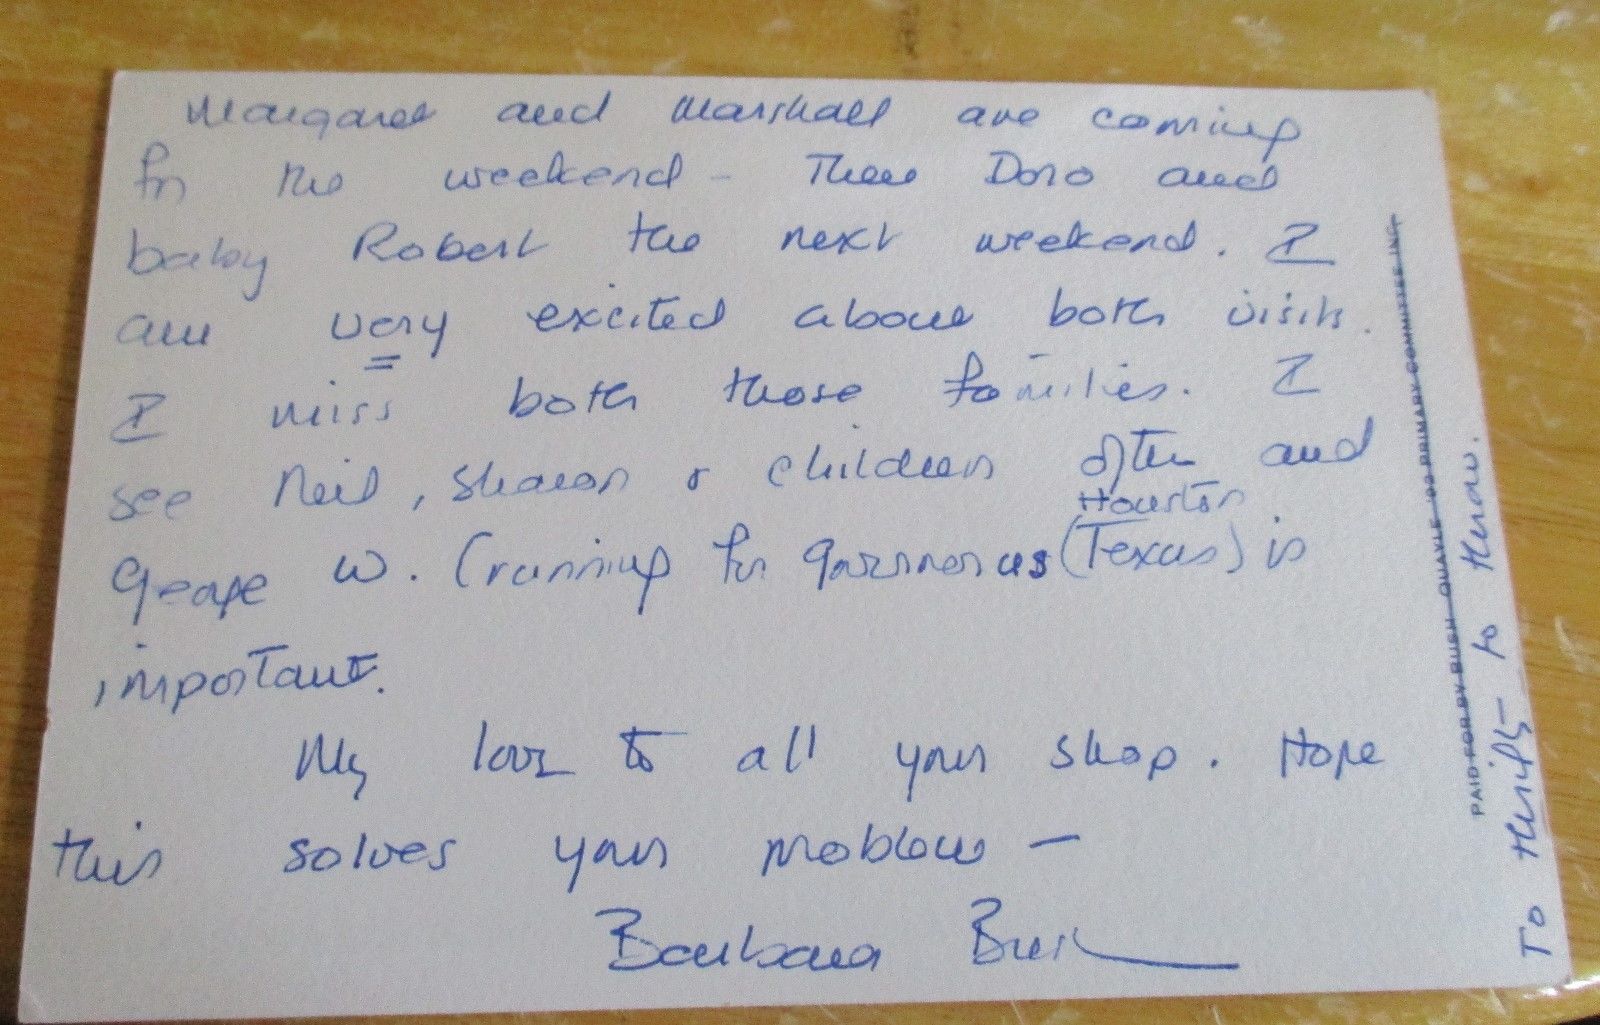 Margaret and Marshall are coming
for the weekend - Then Doro and
baby Robert the next weekend. I
am very excited about both visits.
I miss both those families. I
see Neil, Sharon & children often and
Houston
George W. (running for governor (Texas) is
important.
My love to all your shop. Hope
this solves your problem —
Barbara Bush
PAID FOR BY BUSH-QUAYLE '92 PRIMARY COMMITTEE INC.
To thrifty - to throw.